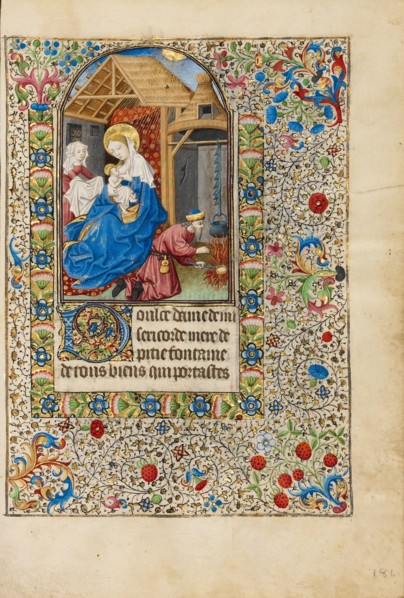 Doulce dame de mi
sericorde mere de
pitie fontaine
de tous biens qui portastes